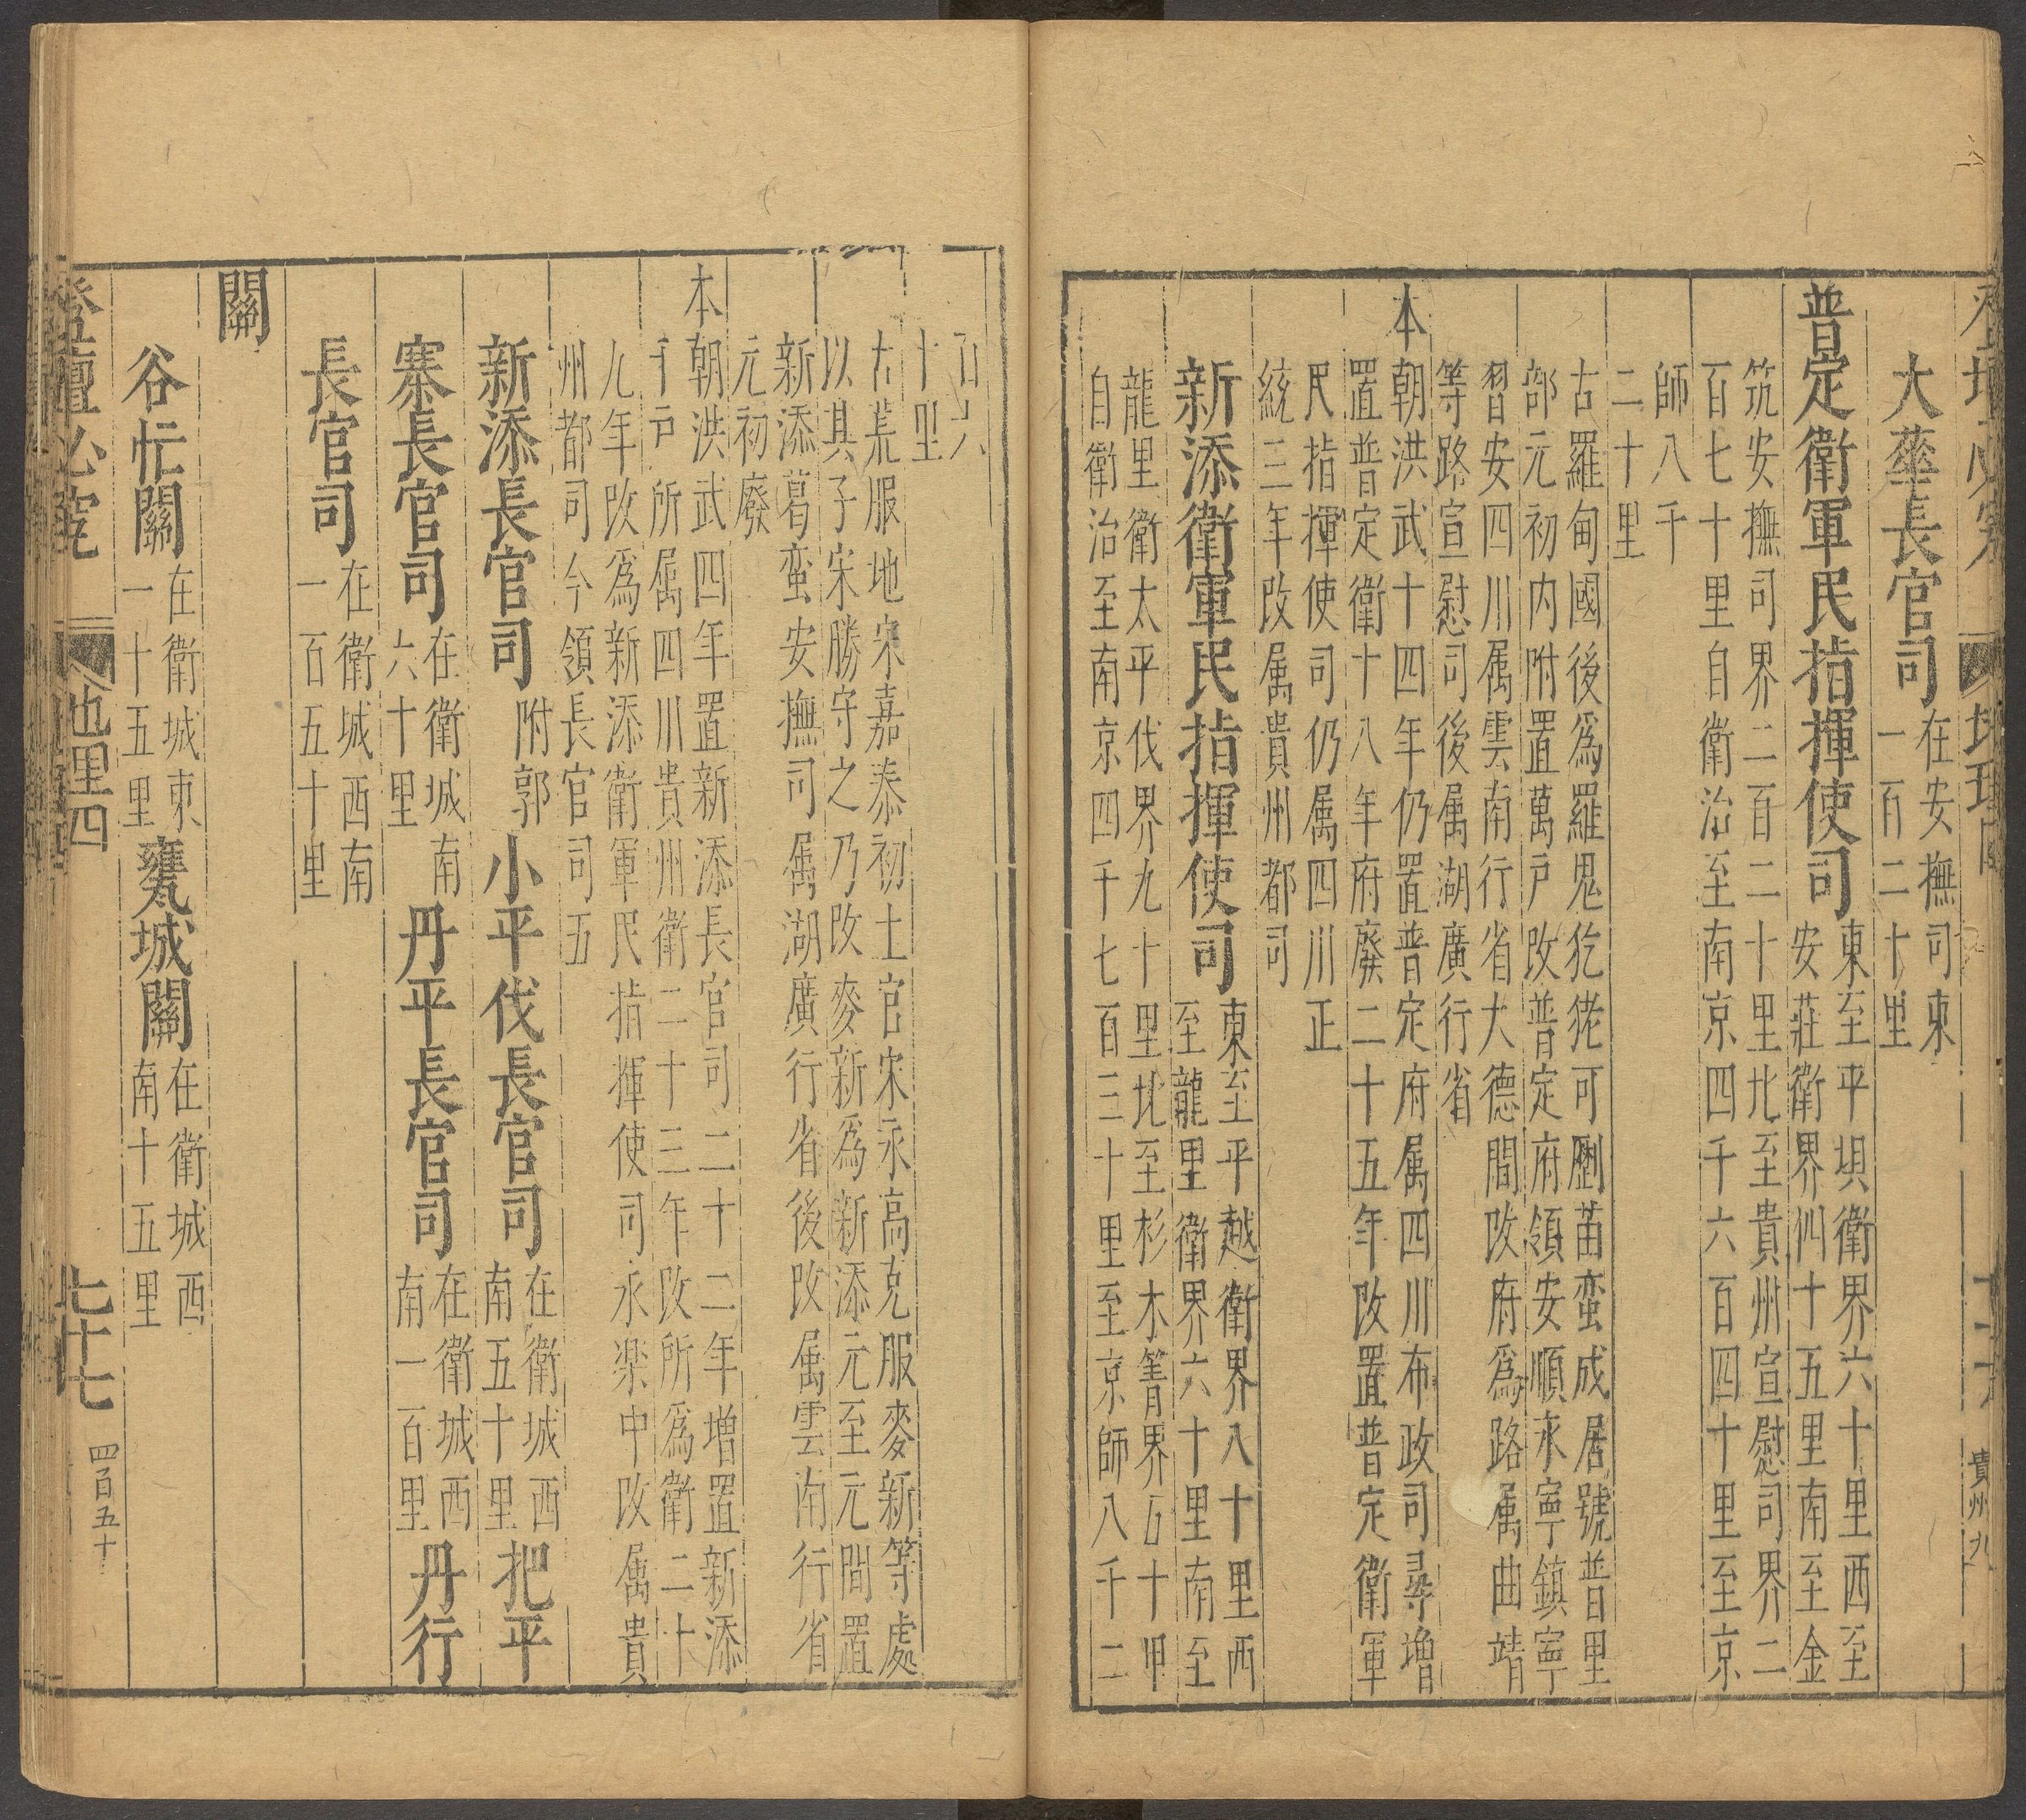 大華長官司在安撫司東
一百二十里
普定衛軍民指揮使司東至平垻衛界六十里西至
安莊衛界四十五里南至金
筑安撫司界二百二十里北至貴州宣慰司界二
百七十里自衛治至南京四千六百四十里至京
師八千
二十里
古羅甸國後為羅鬼犵狫可剽苗蛮成居號普里
部元初内附置萬户改普定府領安順永寧鎮寧
習安四川属雲南行省大德間改府為路属曲靖
等路宣慰司後属湖廣行省
本朝洪武十四年仍置普定府属四川布政司尋增
置普定衛十八年府廢二十五年改置普定衛軍
民指揮使司仍属四川正
統三年改属貴州都司
新添衛軍民指揮使司東至平越衛界八十里西
至龍里衛界六十里南至
龍里衛太平伐界九十里北至杉木箐界百十里
自衛治至南京四千七百三十里至京師八千二
百六
十里
古荒服地宋嘉泰初土官宋永高克服麥新等處
以其子宋勝守之乃改麥新為新添元至元間置
新添葛蛮安撫司属湖廣行省後改属雲南行省
元初廢
本朝洪武四年置新添長官司二十二年增置新添
千户所属四川貴州衛二十三年改所為衛二十
九年改為新添衛軍民指揮使司永楽中改属貴
州都司今領長官司五
新添長官司附郭小平伐長官司在衛城西
南五十里把平
寨長官司在衛城南
六十里丹平長官司在衛城西
南一百里丹行
長官司在衛城西南
一百五十里
關
谷忙關在衛城東
一十五里甕城關在衛城西
南十五里
登壇必究 地里四 七十七 四百五十
貴州九